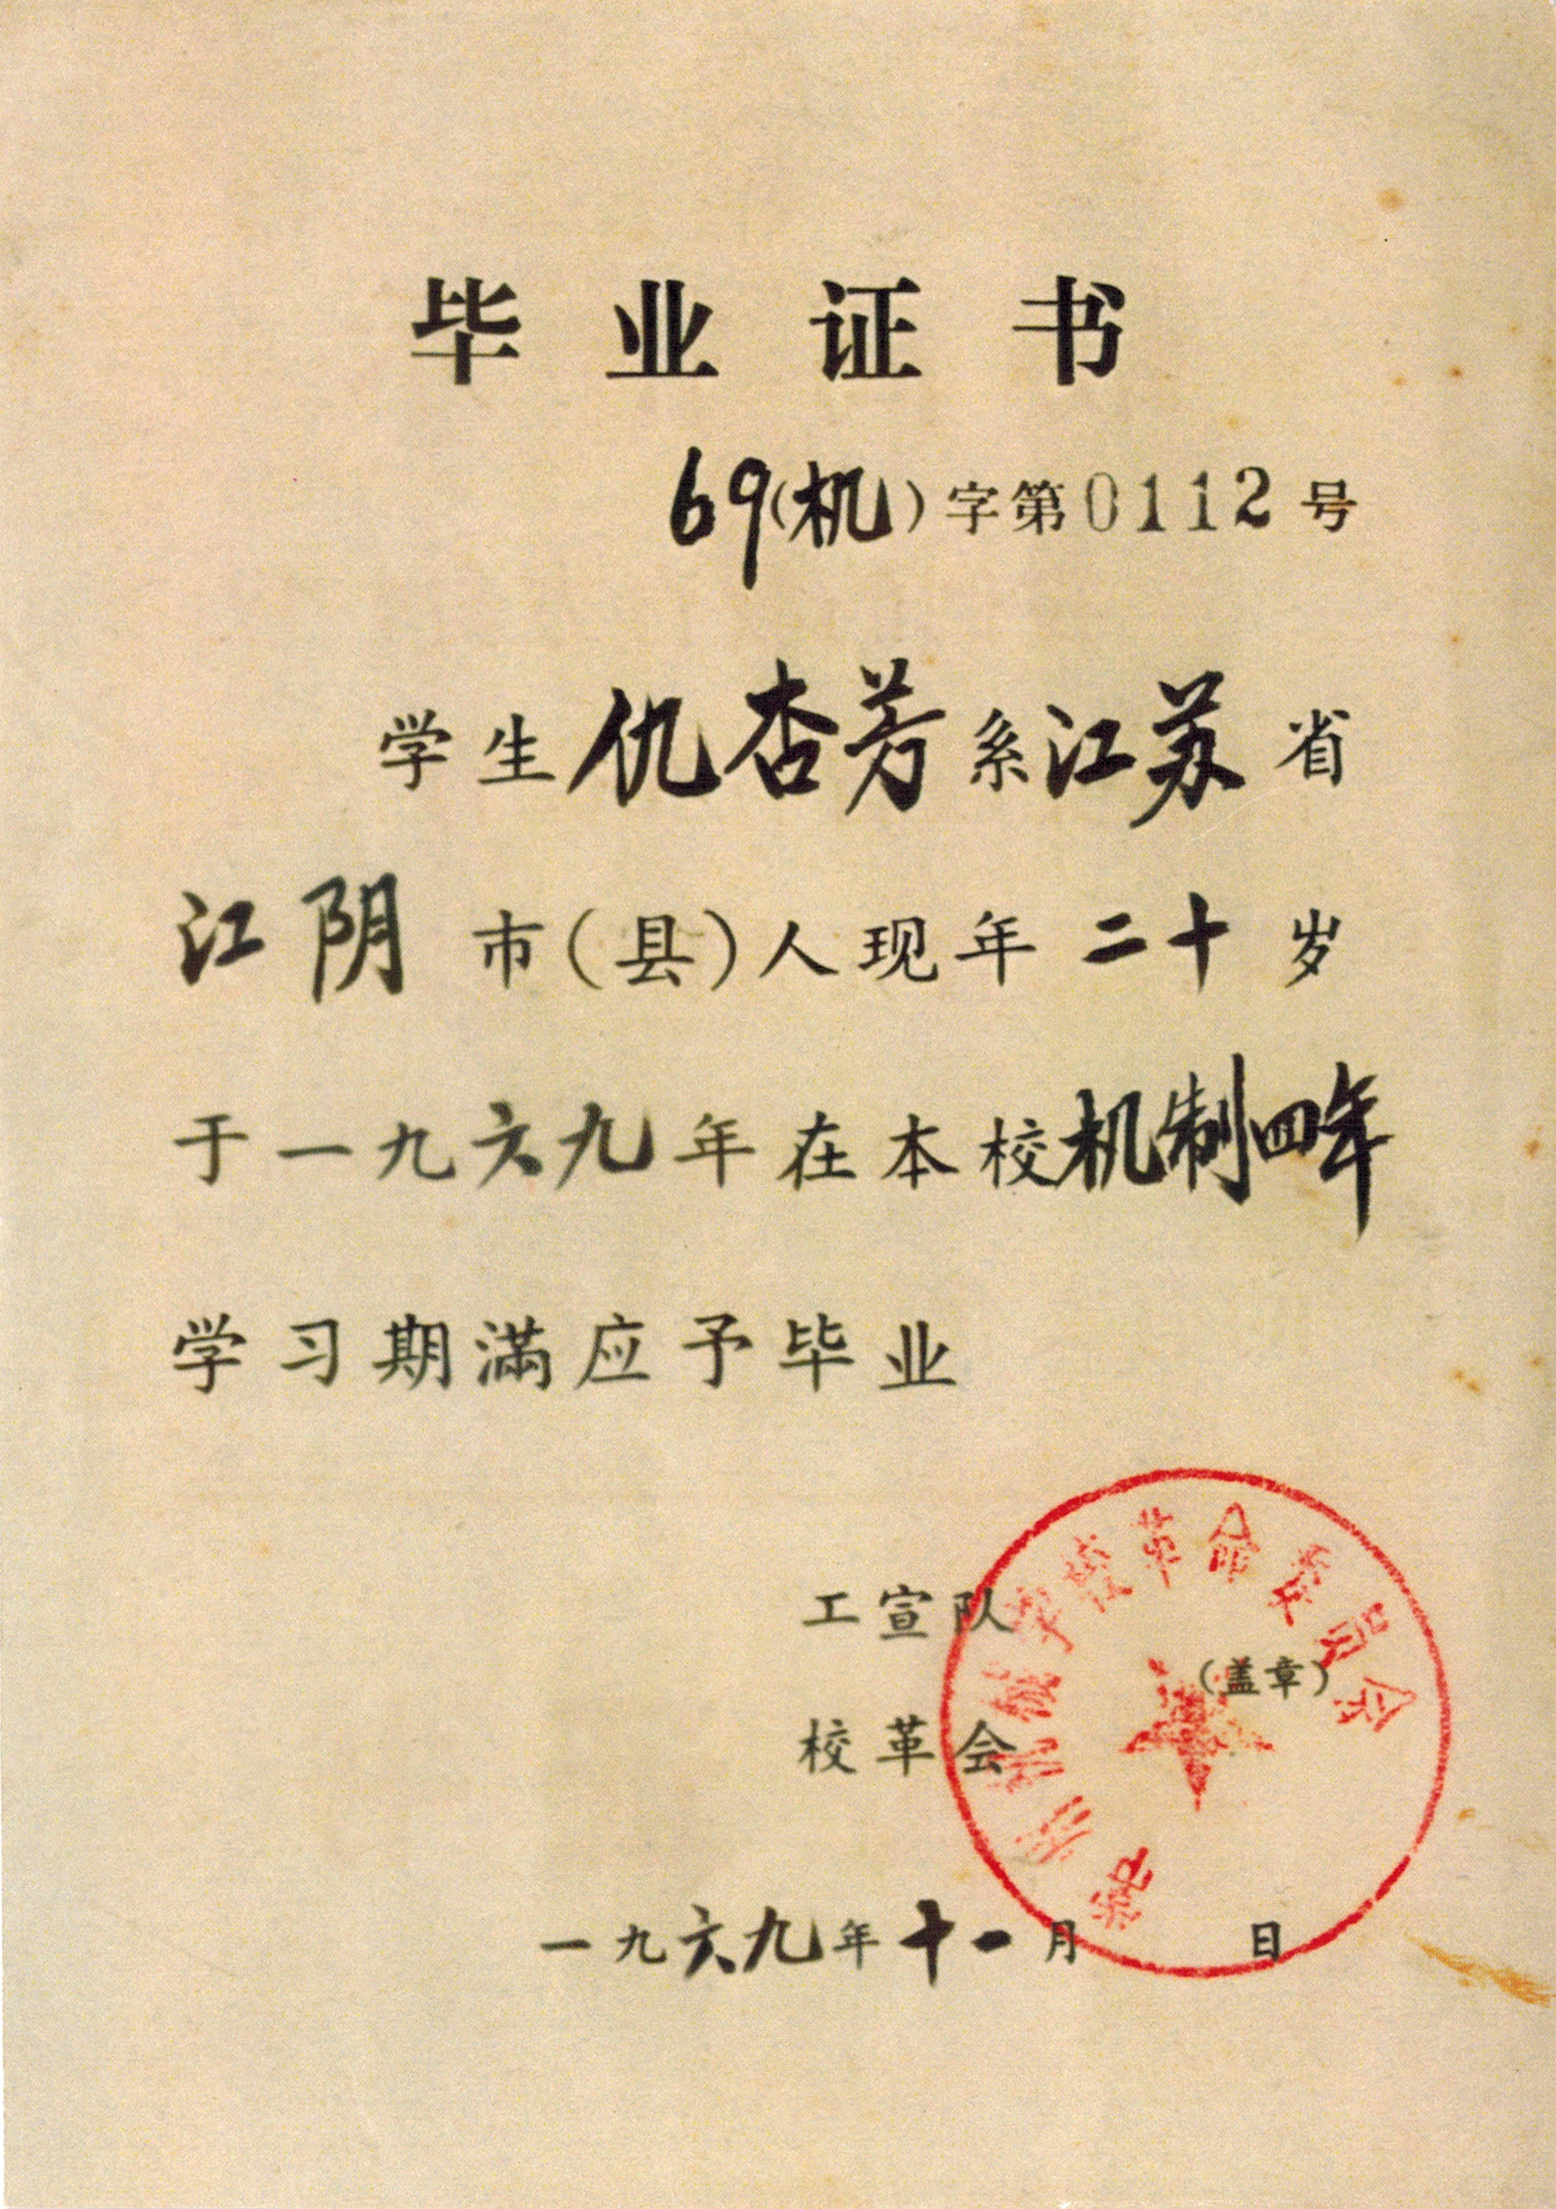 毕业证书
69(机)字第0112号
学生仇杏芳系江苏省
江阴市(县)人现年二十岁
于一九六九年在本校机制四年
学习期满应予毕业
工宣队
(盖章)
校革会
一九六九年十一月 日
常州机械学校革命委员会